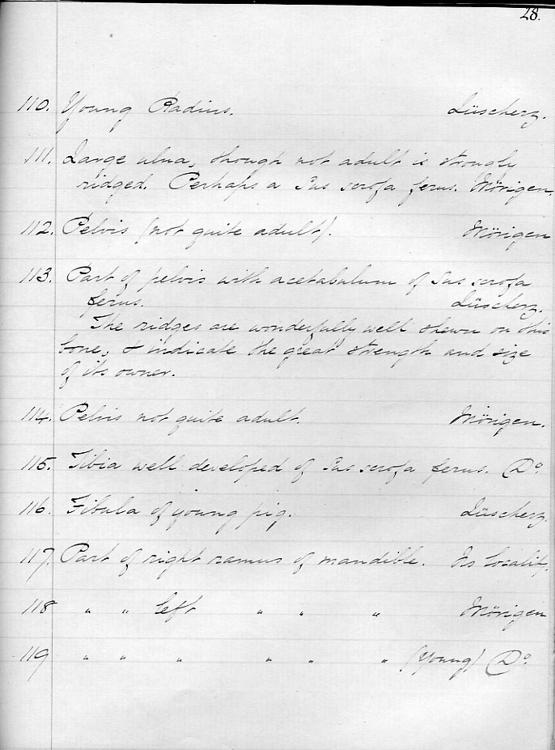 28.
110. Young Radius. Lüscherz.
111. Large ulna, though not adult is strongly
ridged. Perhaps a Sus scrofa ferus. Mörigen.
112. Pelvis (not quite adult). Mörigen
113. Part of pelvis with acetabulum of Sus scrofa
ferus. Lüscherz.
The ridges are wonderfully well shewn on this
bone, & indicate the great strength and size
of its owner.
114. Pelvis not quite adult. Mörigen.
115. Tibia well developed of Sus scrofa ferus. Do.
116. Fibula of young pig. Lüscherz
117. Part of right ramus of mandible. No locality.
118 " " left " " " Mörigen
119 " " " " " " (Young) Do.